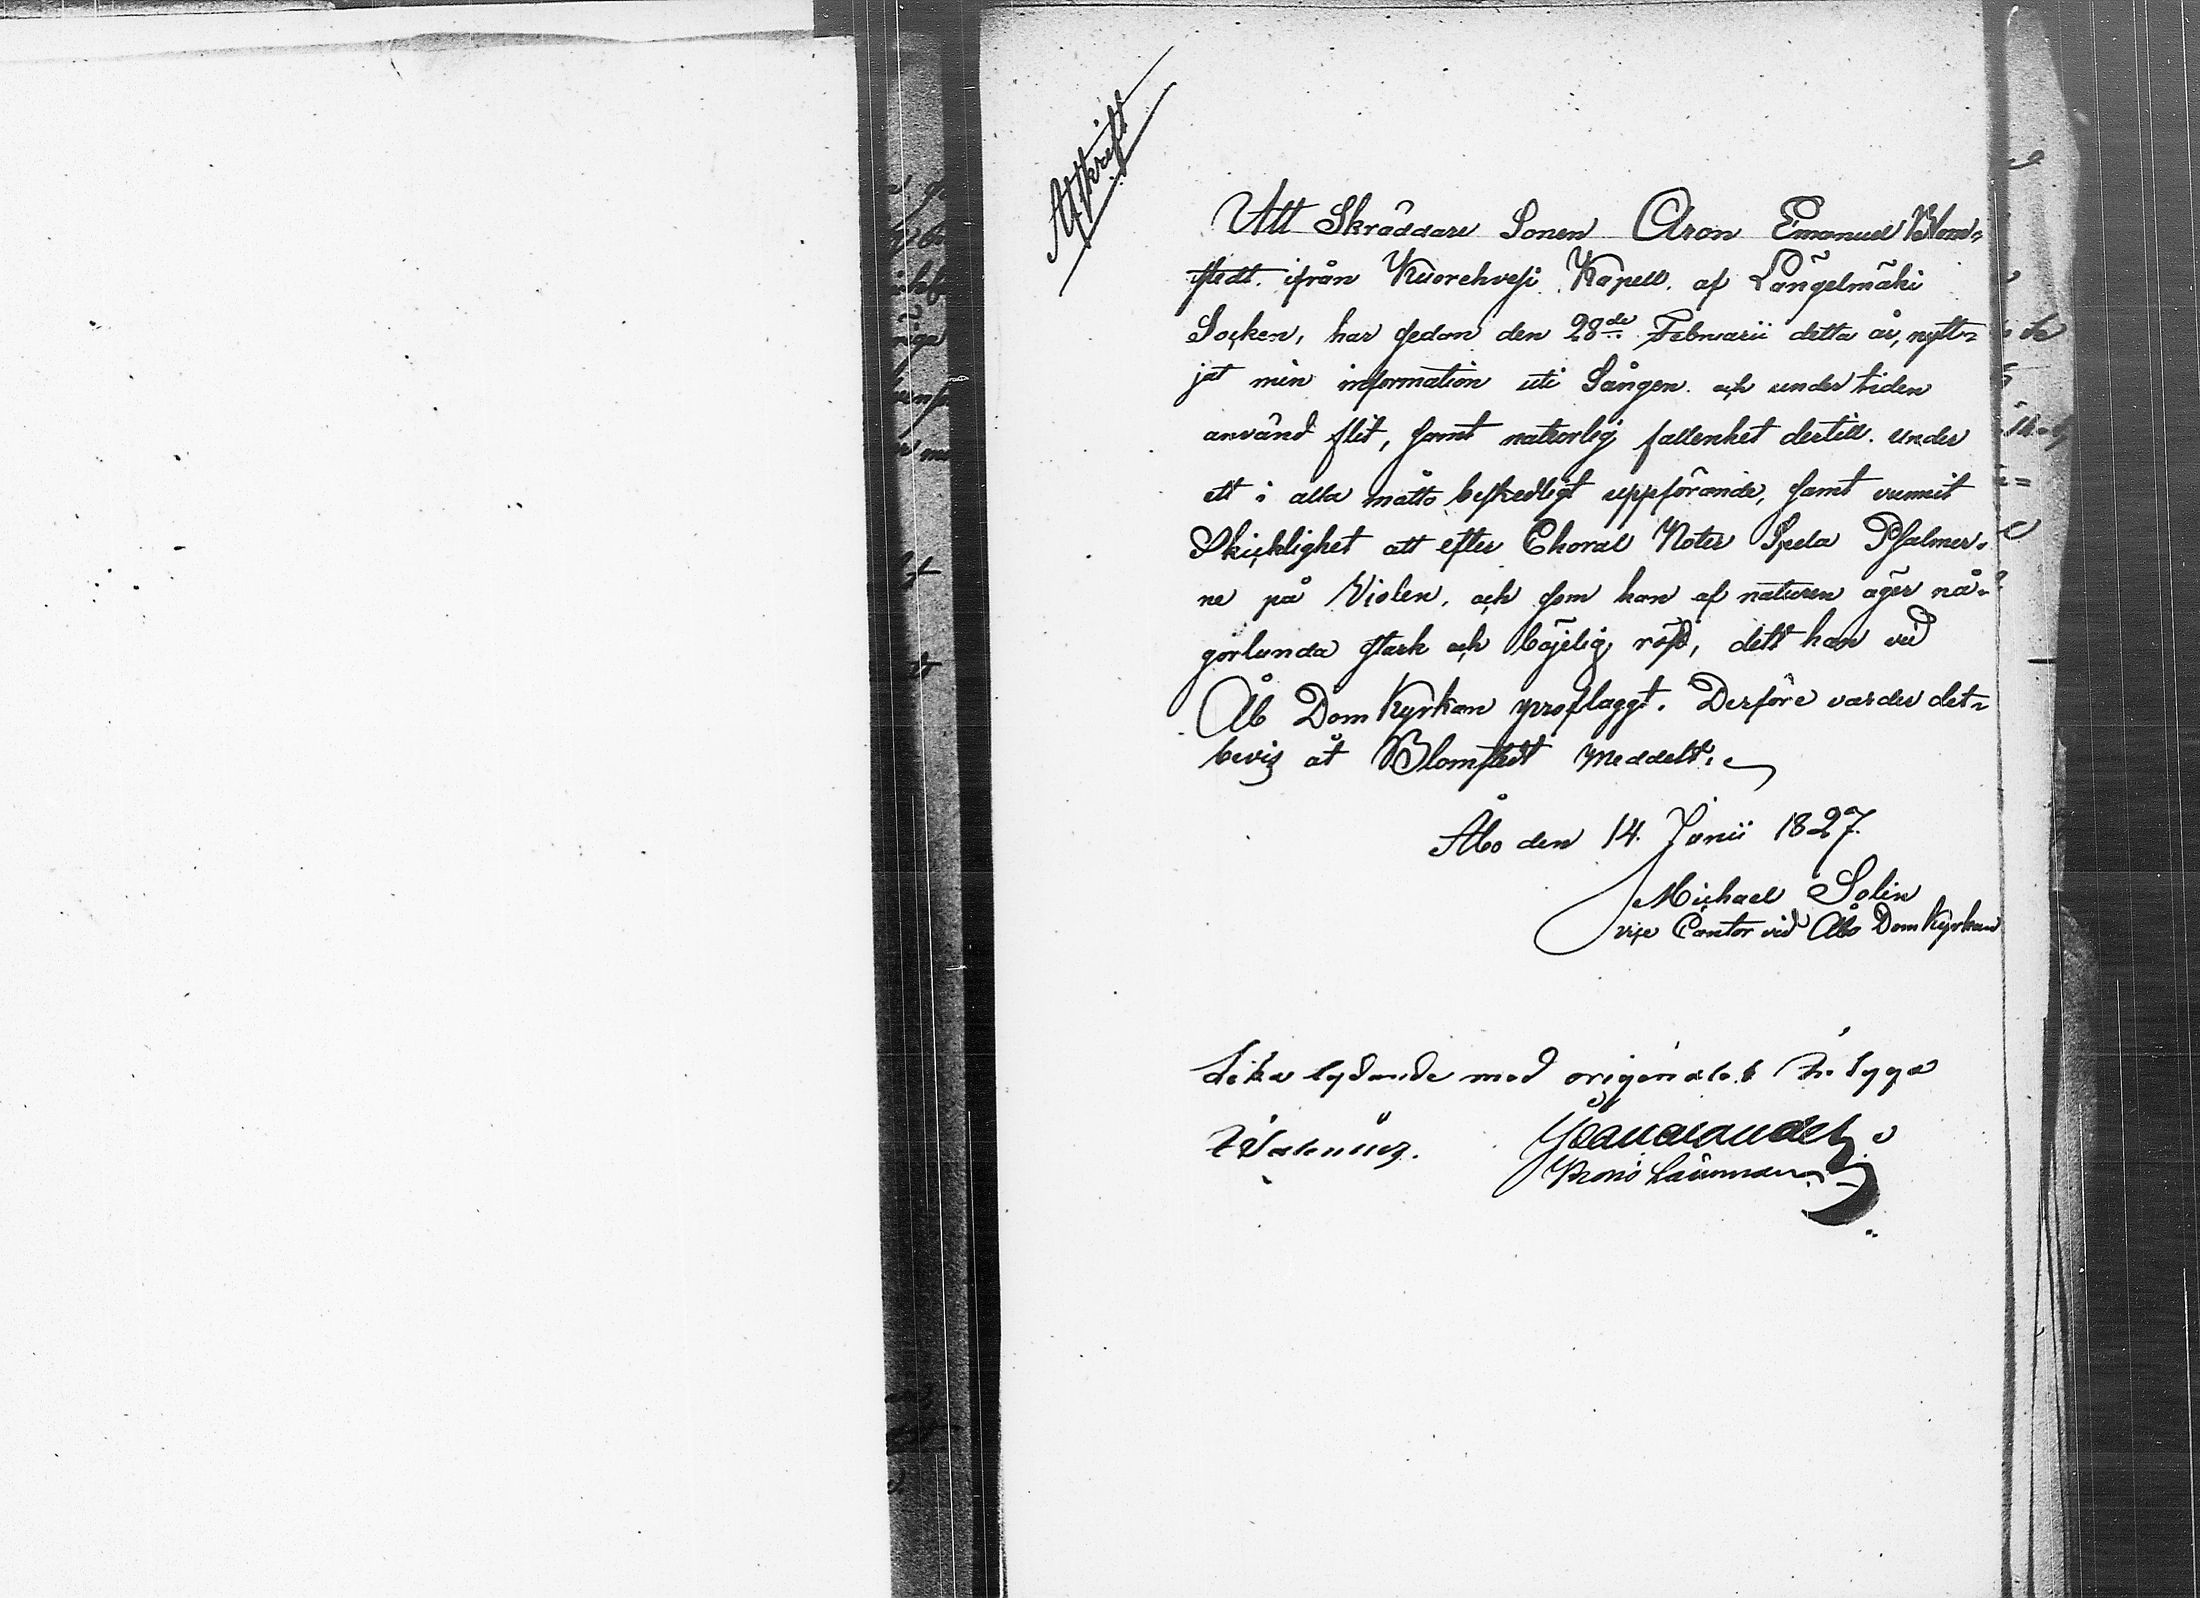 Afskrift
Att Skräddare Sonen Aron Emanuel Blom-
stedt. ifrån Kuorehvesi Kapell. af Längelmäki
Socken, har sedan den 28de Februarii detta år, nytt-
jat min information uti Sången. och under tiden
använd flit, samt naturlig fallenhet dertill. under
ett i alla måtto beskedligt uppförande, samt vunnit
Skicklighet att efter Choral Noter Spela Psalmer-
ne på Violen, och som han af naturen äger nå-
gorlunda stark och böjelig röst, dett han vid
Åb Dom Kyrkan proflaggt. Derföre varder det-
bevis åt Blomstedt Meddelt.
Åbo den 14. Junii 1827.
Michael Solin
vice Cantor vid Åbo Dom Kyrkan
Lika lydande med originalet
Krono Länsman